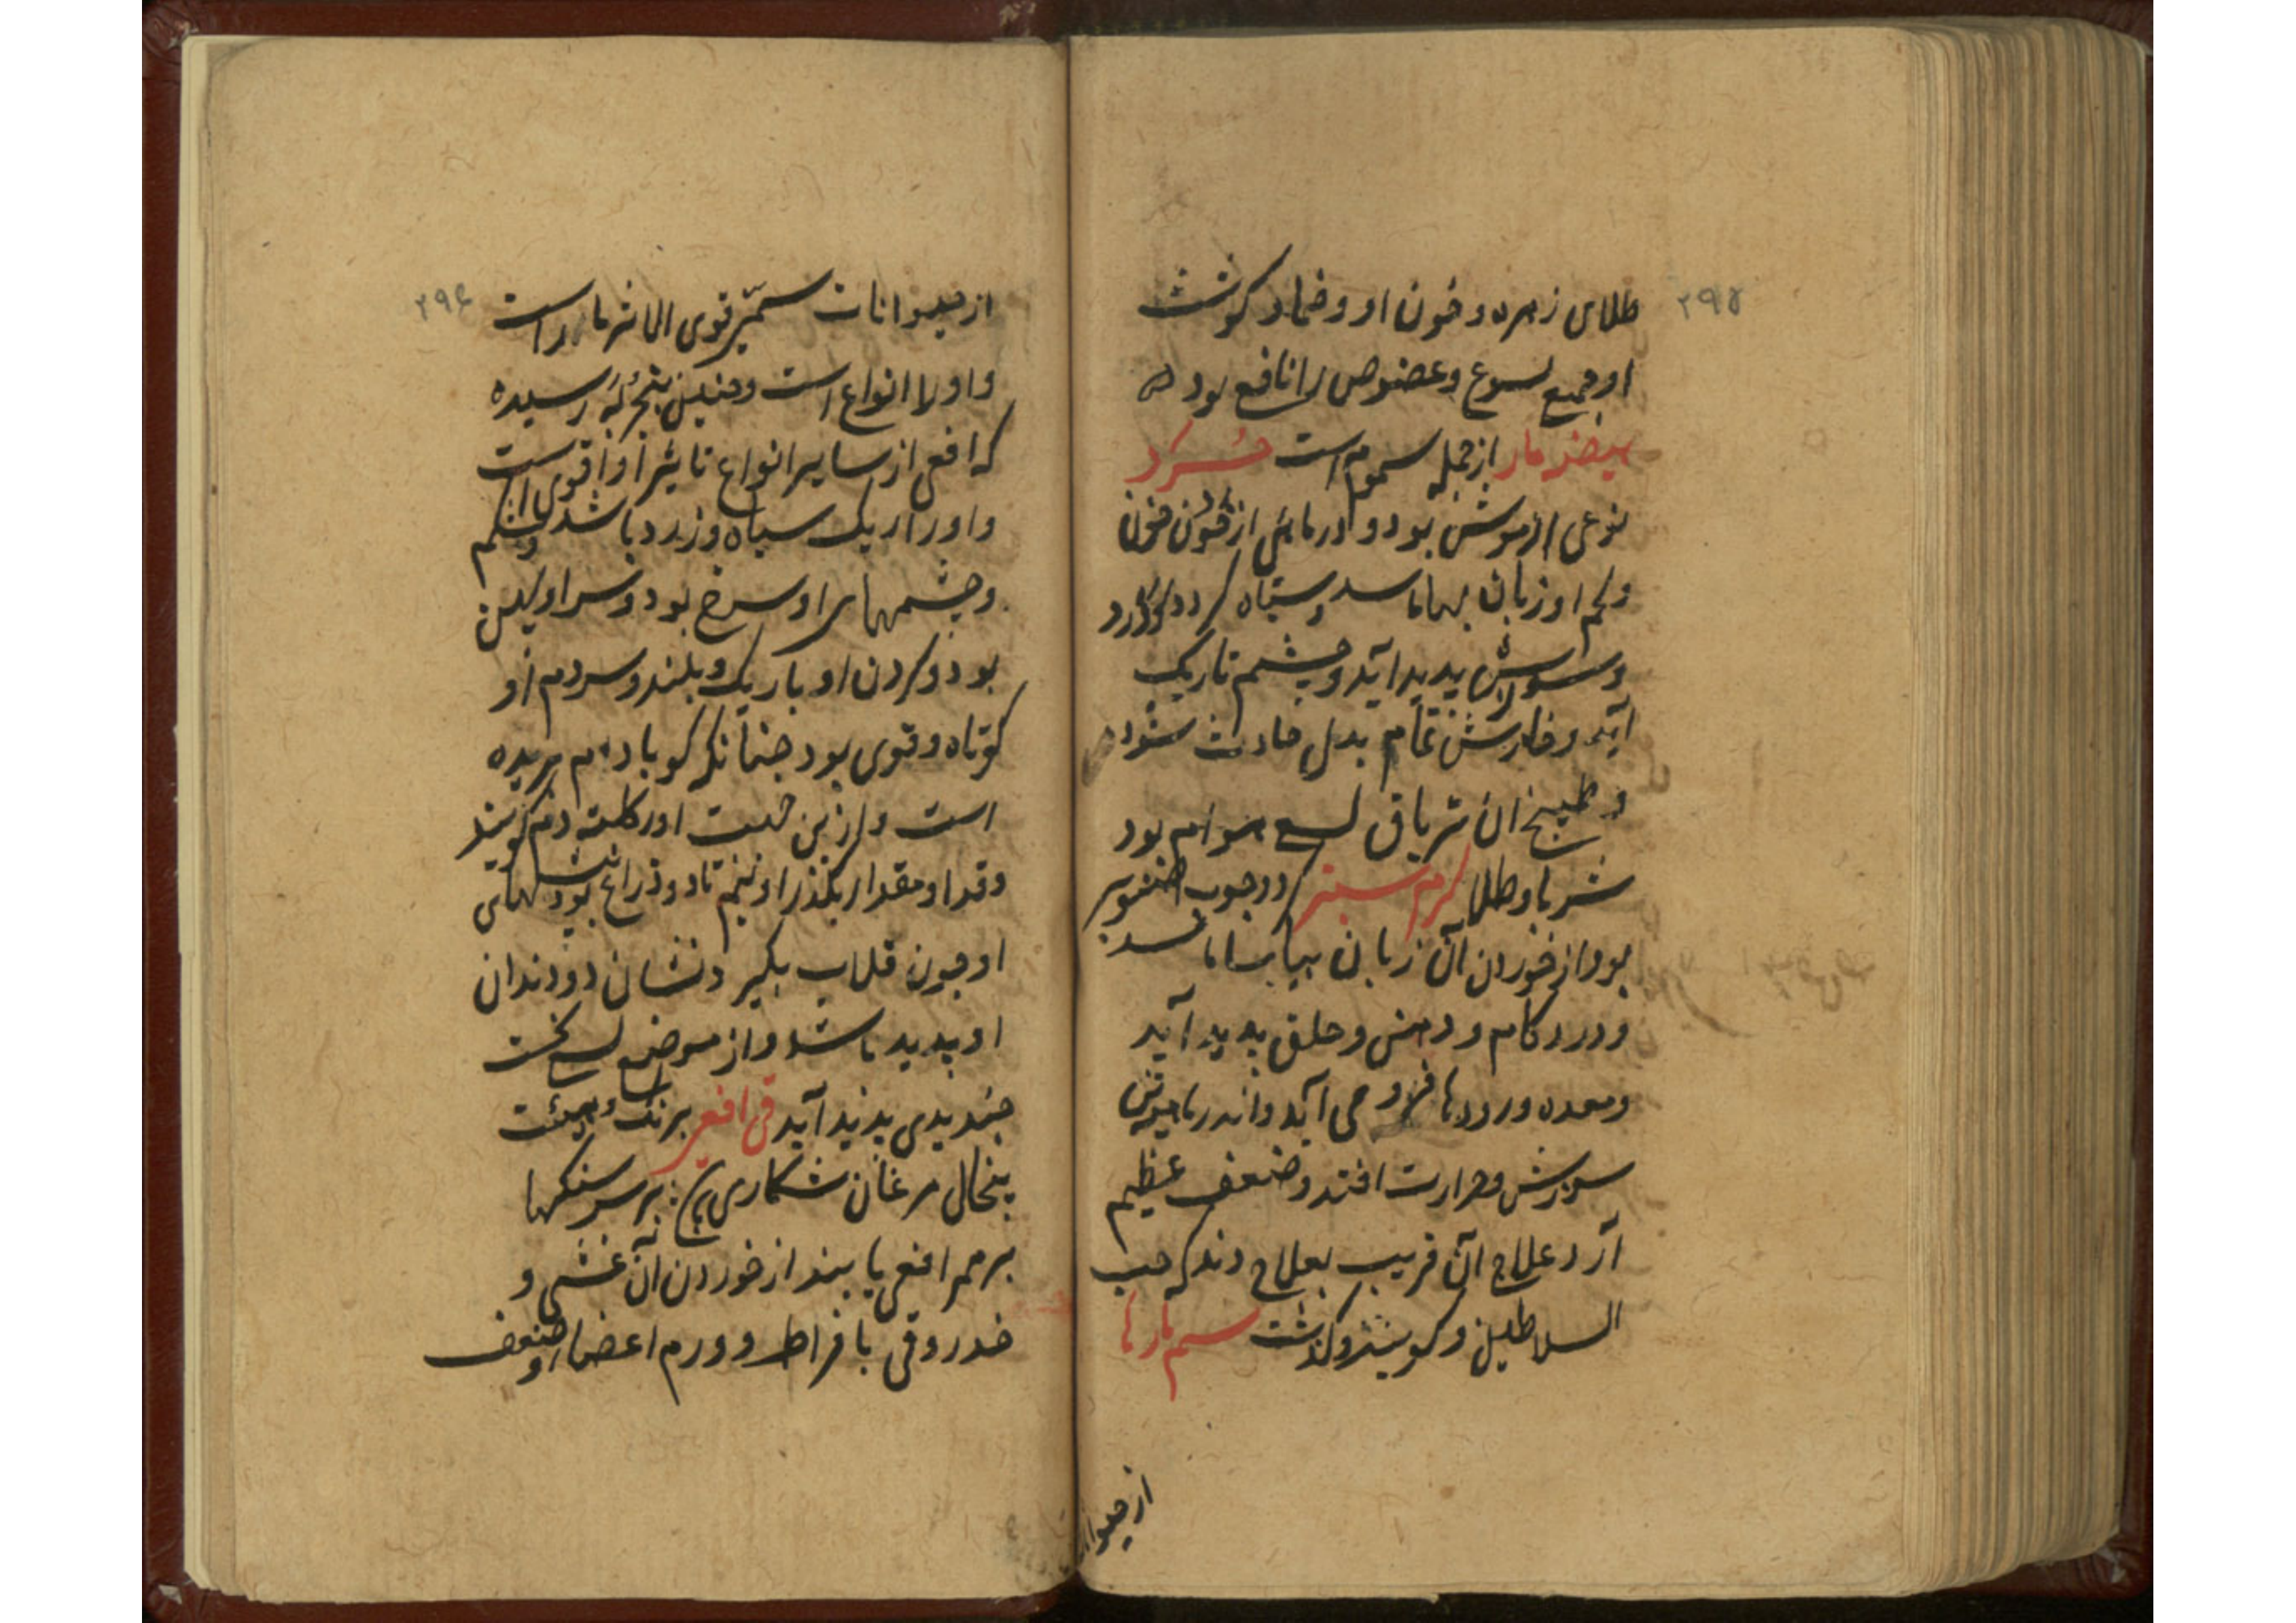 ۲۹۵
طلای زهره و خون او و ضماد کوشت
او جمیع لسوع و عضوض را نافع بود
بیضه مار از جمله سموم است
نوعی از موش بود و از خون
و کم او زبان بیاماسد و سیاه کردد
و سوزش پدید آید و چشم تاریک
آید و خارش تمام بدل حادث شود
و طبیخ آن تریاق لسع هوام بود
شربا و طلا کرم سبز که در چوب صنوبر
بود از خوردن آن زبان بیاماسد
و درد کام و دهن و حلق پدید آید
و معده و رودها فرو می آید و اندرها
سوزش و حرارت افتد و ضعف عظیم
آرد علاج آن قریب بعلاج دند که حب
السلاطین و کویند و کذشت سم مارها
از حیوانات
۲۹۶
از حیوانات سمیه قوی الاثر مار است
و او را انواع است و چنین بتجربه رسیده
که افعی از سایر انواع تاثیر او اقوی است
و او را رنک سیاه و زرد باشد
و چشمهای او سرخ بود و سر او پهن
بود و کردن او باریک و بلند و سر دم او
کوتاه و قوی بود چنانکه کویا دم بریده
است و از این جهت او را کلته دم کویند
و قد او مقدار یکذراع و نیم تا دو ذراع بود
او چون قلاب بکیر و نشان دو دندان
او پدید باشد و از موضع لسع نخست
پدید آید قی افعی برنک و هیئت
پیخال مرغان شکاری بر سر سنکها
بر ممر افعی یابند از خوردن آن غشی و
خدر و قی بافراط و ورم اعضا و ضعف